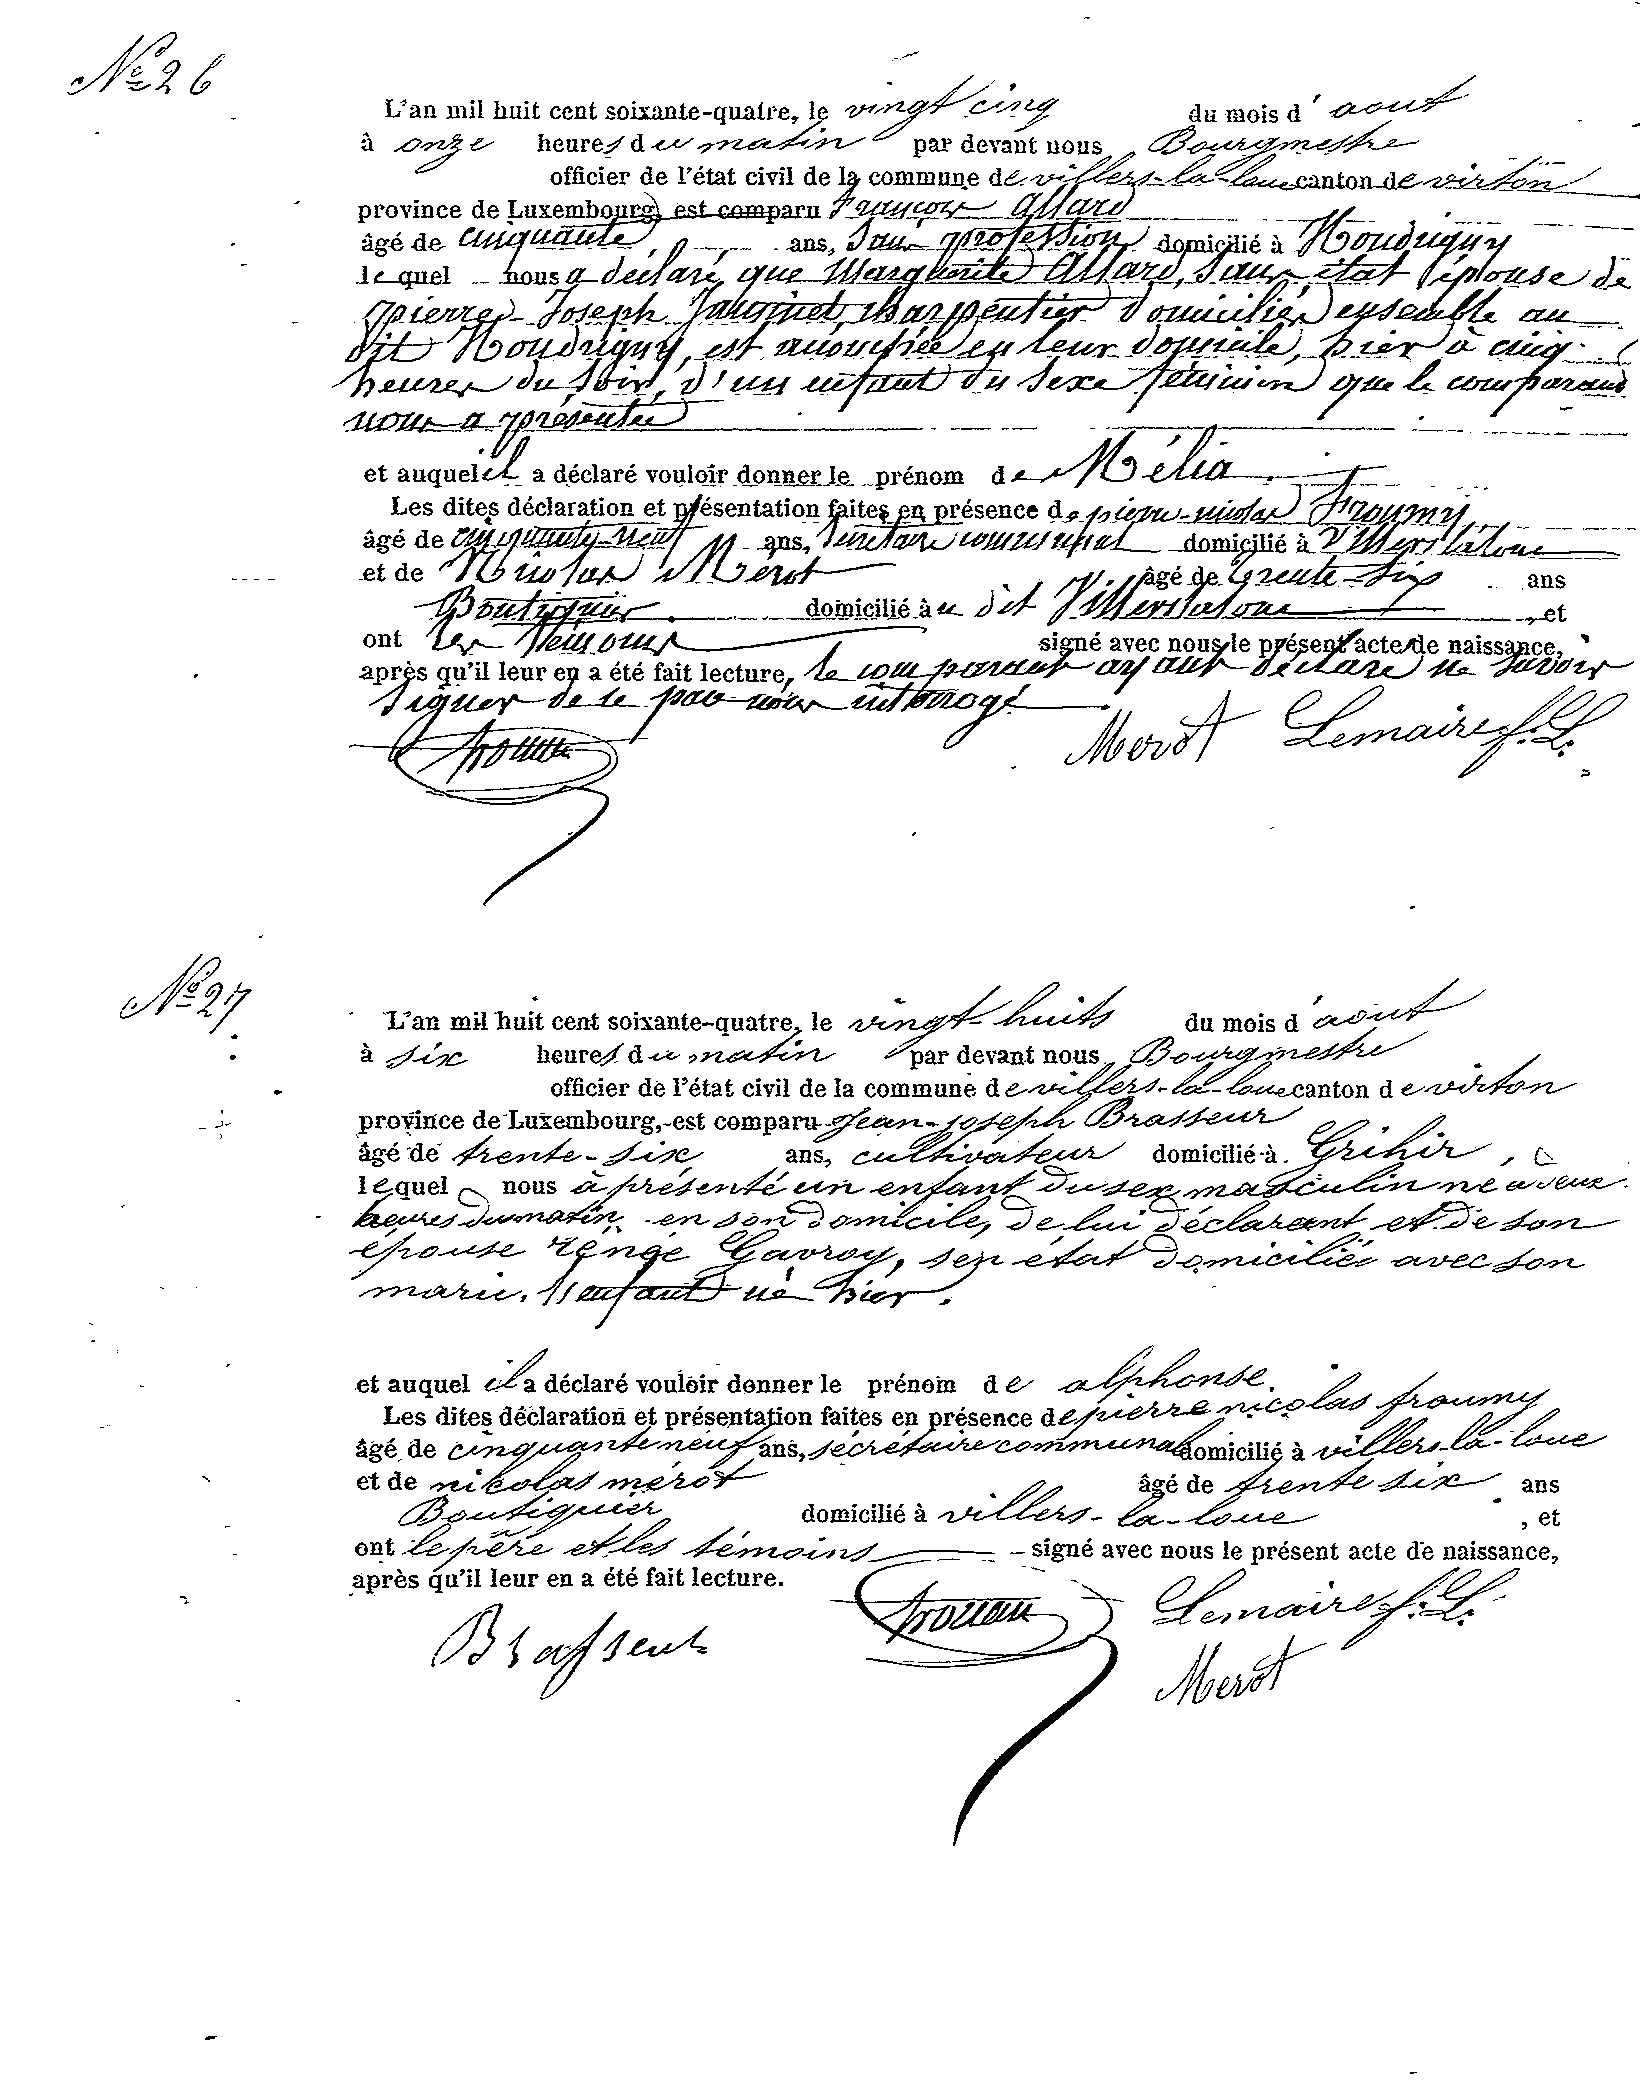 Nº 26
L'an mil huit cent soixante-quatre, le vingt cinq du mois d'aout
à onze heures du matin par devant nous Bourgmestre
officier de l'état civil de la commune de villers-la-loue canton de virton
province de Luxembourg, est comparu François Allard
âgé de cinquante ans, sans profession domicilié à Houdrigny
lequel nous a déclaré que Marguerite Allard, sans état épouse de
pierre-Joseph charpentier domiciliés ensemble au
dit Houdrigny, est accouchée en leur domicile, hier à cinq
heures du soir, d'un enfant du sexe féminin que le comparant
nous a présentée
et auquel il a déclaré vouloir donner le prénom de Mélia.
Les dites déclaration et présentation faites en présence de pierre-nicolas Froumy
âgé de cinquante-neuf ans, secrétaire communal domicilié à Villerslaloue
et de Nicolas Merot âgé de trente-six ans
Boutiquier domicilié au dit Villerslaloue, et
ont les témoins signé avec nous le présent acte de naissance,
après qu'il leur en a été fait lecture, le comparant ayant déclaré ne savoir
signer de ce par nous interrogé.
Merot Lemaire f. L.
Nº 27
L'an mil huit cent soixante-quatre, le vingt-huits du mois d'aout
à six heures du matin par devant nous, Bourgmestre
officier de l'état civil de la commune de villers-la-loue canton de virton
province de Luxembourg, est comparu Jean-joseph Brasseur
âgé de trente-six ans, cultivateur domicilié à Grihir,
lequel nous à présenté un enfant du sex masculin ne a deux
heures du matin en son domicile, de lui déclarant et de son
épouse Gavroy, sen état domiciliée avec son
marie. l'enfant né hier.
et auquel il a déclaré vouloir donner le prénom de alphonse.
Les dites déclaration et présentation faites en présence de pierre nicolas froumy
âgé de cinquante neuf ans, secrétaire communal domicilié à villers-la-loue
et de nikolas mérot âgé de trente six ans
Boutiquier domicilié à villers-la-loue, et
ont le père et les témoins signé avec nous le présent acte de naissance,
après qu'il leur en a été fait lecture.
Brasseur Lemaire f. L.
Merot